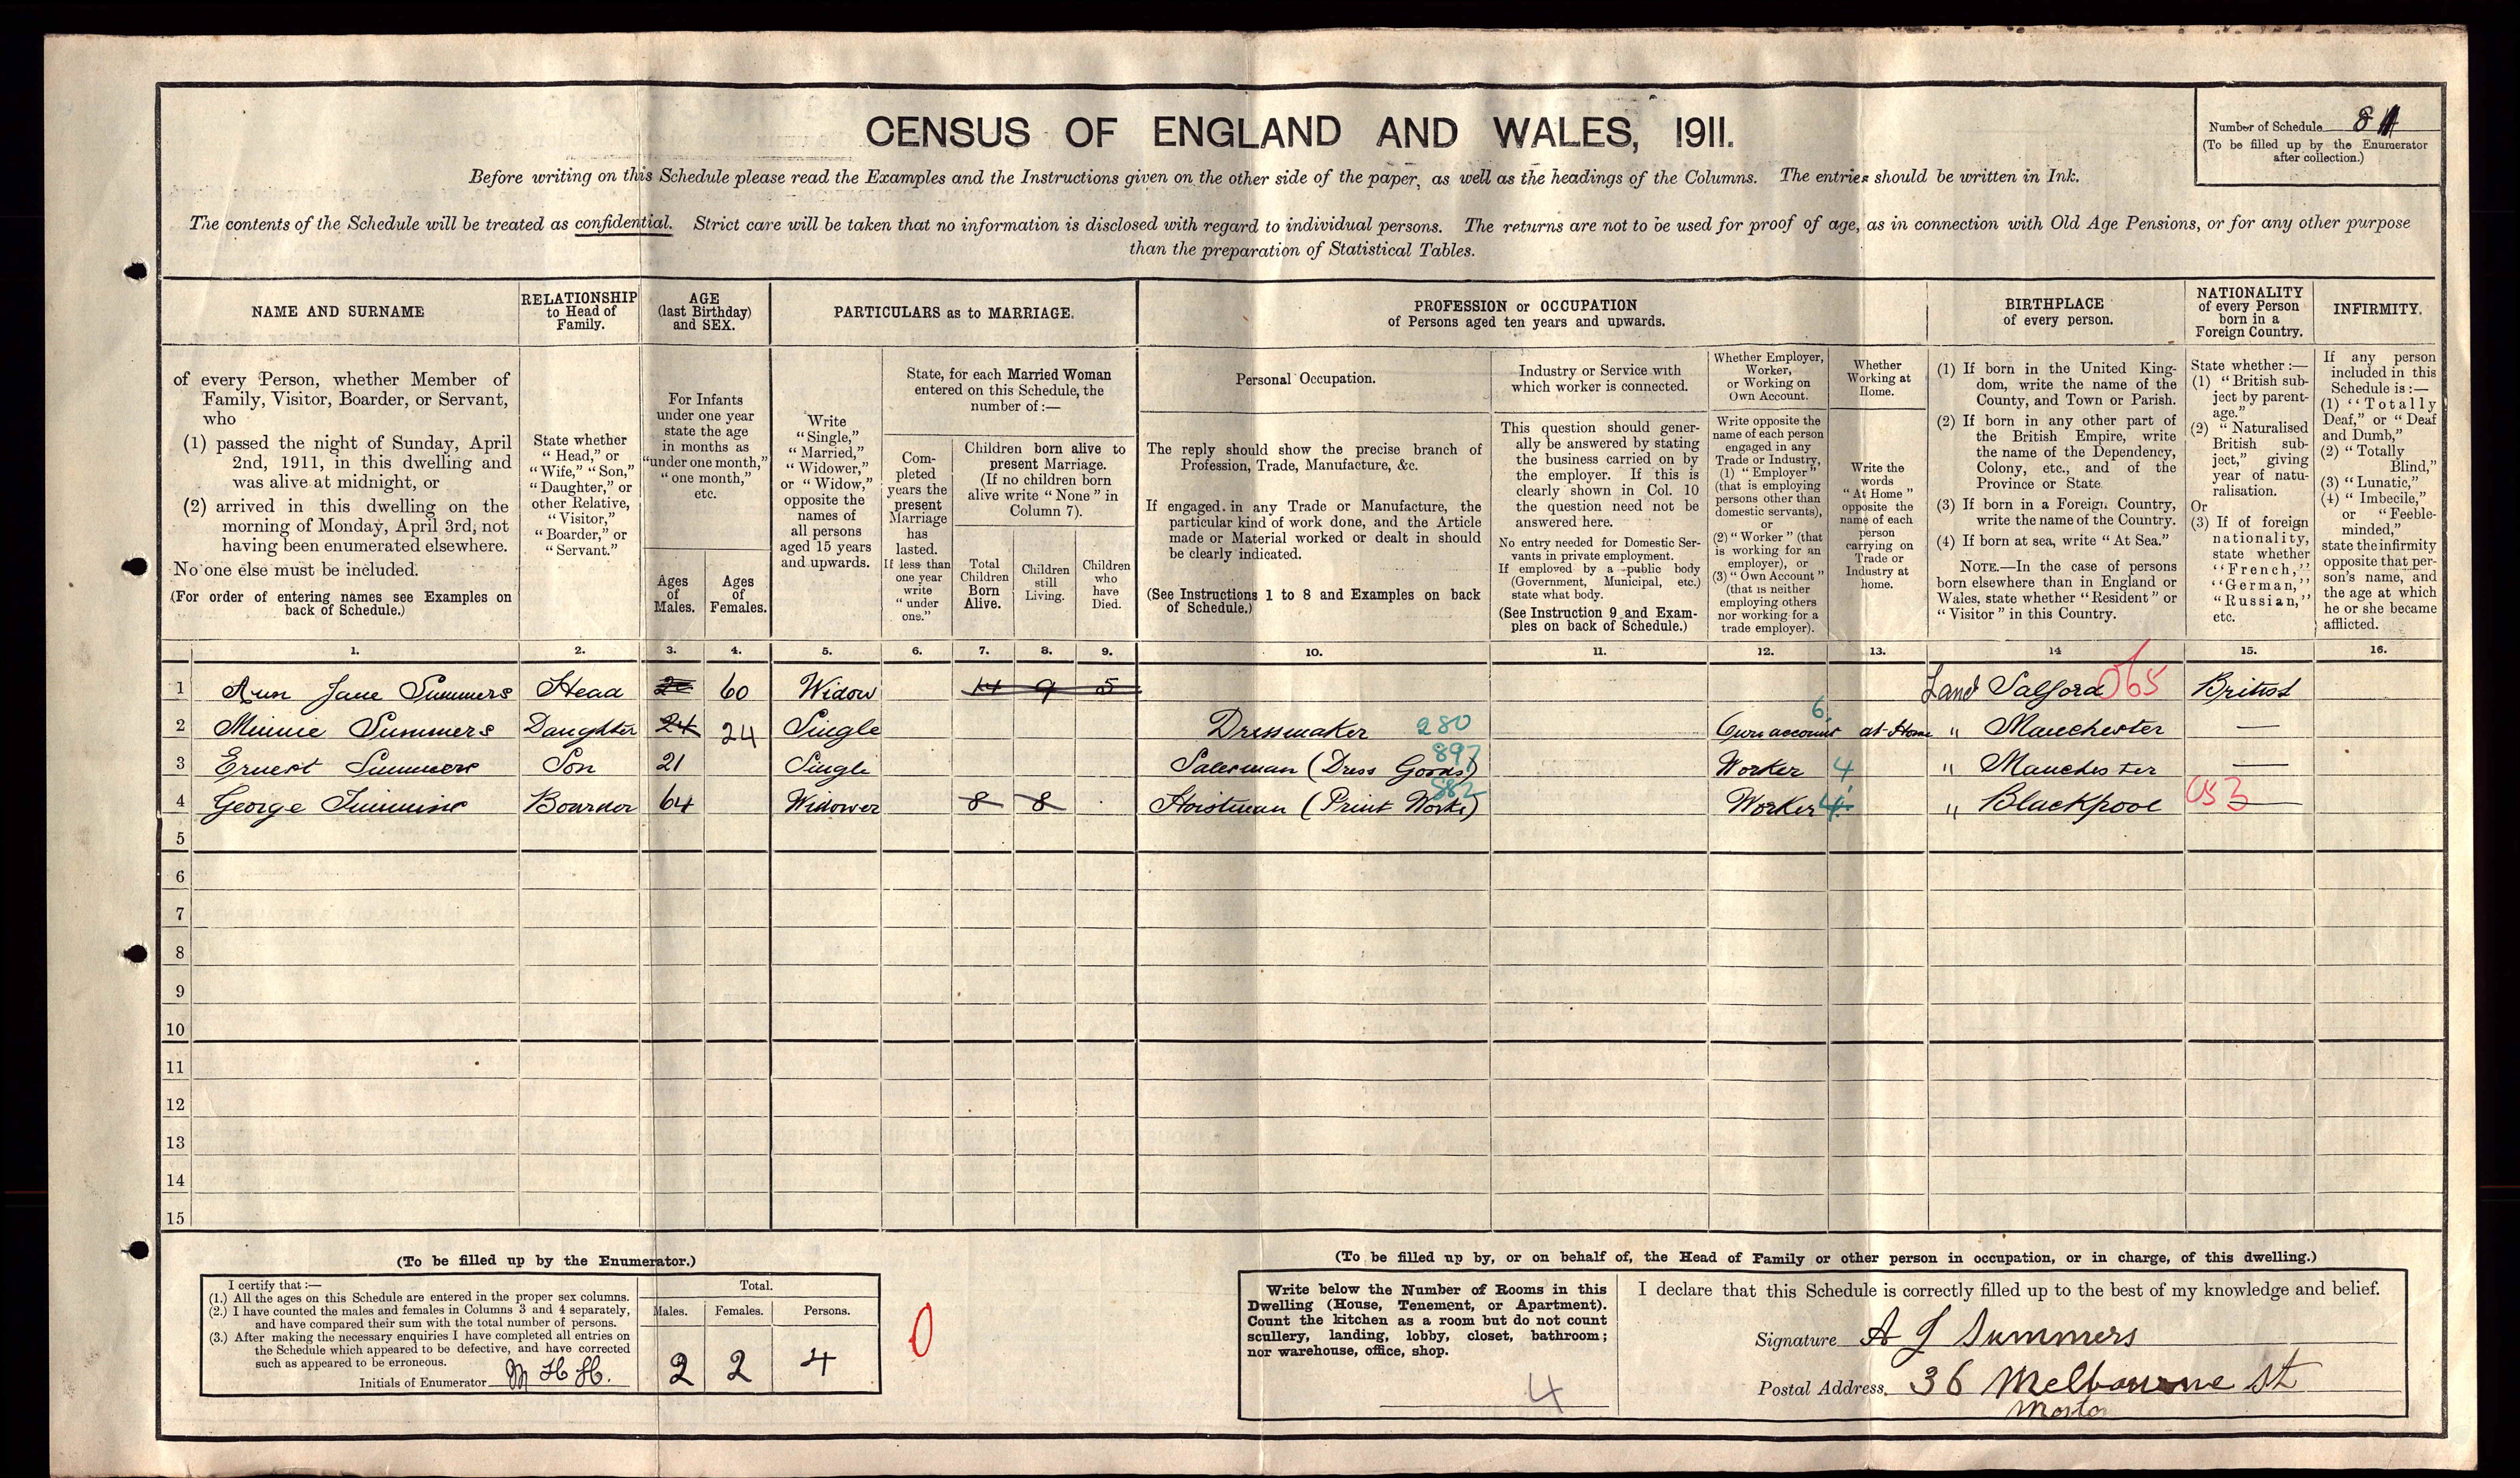 CENSUS OF ENGLAND AND WALES, 1911.
Number of Schedule
(To be filled up by the Enumerator
after collection.)
Before writing on this Schedule please read the Examples and the Instructions given on the other side of the paper, as well as the headings of the Columns. The entries should be written in Ink.
The contents of the Schedule will be treated as confidential. Strict care will be taken that no information is disclosed with regard to individual persons. The returns are not to be used for proof of age, as in connection with Old Age Pensions, or for any other purpose
than the preparation of Statistical Tables.
NAME AND SURNAME
RELATIONSHIP
to Head of
Family.
AGE
(last Birthday)
and SEX.
PARTICULARS as to MARRIAGE.
PROFESSION or OCCUPATION
of Persons aged ten years and upwards.
BIRTHPLACE
of every person.
NATIONALITY
of every Person
born in a
Foreign Country.
INFIRMITY.
of every Person, whether Member of
Family, Visitor, Boarder, or Servant,
who
(1) passed the night of Sunday, April
2nd, 1911, in this dwelling and
was alive at midnight, or
(2) arrived in this dwelling on the
morning of Monday, April 3rd, not
having been enumerated elsewhere.
No one else must be included.
(For order of entering names see Examples on
back of Schedule.)
State whether
"Head," or
"Wife," "Son,"
"Daughter," or
other Relative,
"Visitor,"
"Boarder," or
"Servant."
For Infants
under one year
state the age
in months as
"under one month,"
"one month,"
etc.
Ages
of
Males.
Ages
of
Females.
Write
"Single,"
"Married,"
"Widower,"
or "Widow,"
opposite the
names of
all persons
aged 15 years
and upwards.
State, for each Married Woman
entered on this Schedule, the
number of:—
Com-
pleted
years the
present
Marriage
has
lasted.
If less than
one year
write
"under
one."
Children born alive to
present Marriage.
(If no children born
alive write "None" in
Column 7).
Total
Children
Born
Alive.
Children
still
Living.
Children
who
have
Died.
Personal Occupation.
The reply should show the precise branch of
Profession, Trade, Manufacture, &c.
If engaged in any Trade or Manufacture, the
particular kind of work done, and the Article
made or Material worked or dealt in should
be clearly indicated.
(See Instructions 1 to 8 and Examples on back
of Schedule.)
Industry or Service with
which worker is connected.
This question should gener-
ally be answered by stating
the business carried on by
the employer. If this is
clearly shown in Col. 10
the question need not be
answered here.
No entry needed for Domestic Ser-
vants in private employment.
If employed by a public body
(Government, Municipal, etc.)
state what body.
(See Instruction 9 and Exam-
ples on back of Schedule.)
Whether Employer,
Worker,
or Working on
Own Account.
Write opposite the
name of each person
engaged in any
Trade or Industry,
(1) "Employer"
(that is employing
persons other than
domestic servants),
or
(2) "Worker" (that
is working for an
employer), or
(3) "Own Account"
(that is neither
employing others
nor working for a
trade employer).
Whether
Working at
Home.
Write the
words
"At Home"
opposite the
name of each
person
carrying on
Trade or
Industry at
home.
(1) If born in the United King-
dom, write the name of the
County, and Town or Parish.
(2) If born in any other part of
the British Empire, write
the name of the Dependency,
Colony, etc., and of the
Province or State.
(3) If born in a Foreign Country,
write the name of the Country.
(4) If born at sea, write "At Sea."
NOTE.—In the case of persons
born elsewhere than in England or
Wales, state whether "Resident" or
"Visitor" in this Country.
State whether:—
(1) "British sub-
ject by parent-
age."
(2) "Naturalised
British sub-
ject," giving
year of natu-
ralisation.
Or
(3) If of foreign
nationality,
state whether
"French,"
"German,"
"Russian,"
etc.
If any person
included in this
Schedule is:—
(1) "Totally
Deaf," or "Deaf
and Dumb,"
(2) "Totally
Blind,"
(3) "Lunatic,"
(4) "Imbecile,"
or "Feeble-
minded,"
state the infirmity
opposite that per-
son's name, and
the age at which
he or she became
afflicted.
1. 2. 3. 4. 5. 6. 7. 8. 9. 10. 11. 12. 13. 14 15. 16.
1 Ann Jane Summers Head 60 Widow 14 9 5 Salford 065 British
2 Minnie Summers Daughter 24 24 Single Dressmaker 280 Own account 6 at Home " Manchester —
3 Ernest Summers Son 21 Single Salesman (Dress Goods) 897 Worker 4 " Manchester —
4 George Boarder 64 Widower 8 8 Hoistman (Print Works) 882 Worker 4 " Blackpool 053 —
5
6
7
8
9
10
11
12
13
14
15
(To be filled up by the Enumerator.)
I certify that:—
(1.) All the ages on this Schedule are entered in the proper sex columns.
(2.) I have counted the males and females in Columns 3 and 4 separately,
and have compared their sum with the total number of persons.
(3.) After making the necessary enquiries I have completed all entries on
the Schedule which appeared to be defective, and have corrected
such as appeared to be erroneous.
Initials of Enumerator M H H.
Total.
Males. Females. Persons.
2 2 4
0
(To be filled up by, or on behalf of, the Head of Family or other person in occupation, or in charge, of this dwelling.)
Write below the Number of Rooms in this
Dwelling (House, Tenement, or Apartment).
Count the kitchen as a room but do not count
scullery, landing, lobby, closet, bathroom;
nor warehouse, office, shop.
4
I declare that this Schedule is correctly filled up to the best of my knowledge and belief.
Signature A J Summers
Postal Address 36 Melbourne St